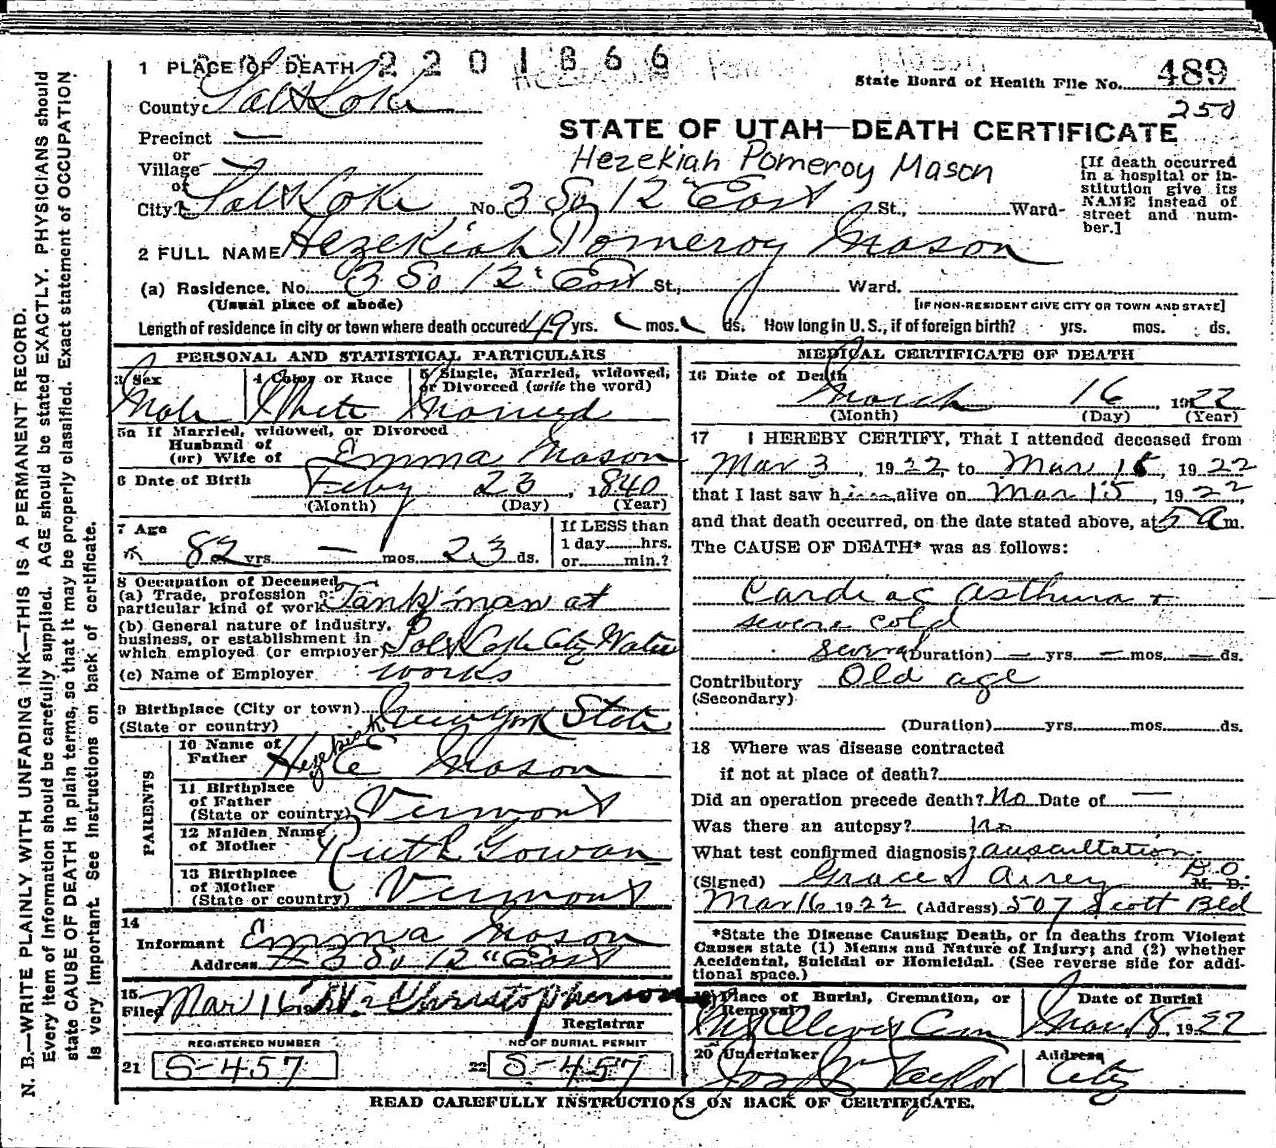 N. B.—WRITE PLAINLY WITH UNFADING INK—THIS IS A PERMANENT RECORD.
Every item of information should be carefully supplied. AGE should be stated EXACTLY. PHYSICIANS should
state CAUSE OF DEATH in plain terms, so that it may be properly classified. Exact statement of OCCUPATION
is very important. See instructions on back of certificate.
1 PLACE OF DEATH 2201866
State Board of Health File No. 489
250
County Salt Lake
STATE OF UTAH—DEATH CERTIFICATE
Precinct —
or
Village
or
City Salt Lake No. 3 So 12" East St., Ward
Hezekiah Pomeroy Mason
[If death occurred
in a hospital or in-
stitution give its
NAME instead of
street and num-
ber.]
2 FULL NAME Hezekiah Pomeroy Mason
(a) Residence. No. 3 So 12" East St., Ward.
(Usual place of abode)
[IF NON-RESIDENT GIVE CITY OR TOWN AND STATE]
Length of residence in city or town where death occured 49 yrs. mos. ds. How long in U. S., if of foreign birth? yrs. mos. ds.
PERSONAL AND STATISTICAL PARTICULARS
3 Sex 4 Color or Race 5 Single, Married, widowed,
or Divorced (write the word)
Male White Married
5a If Married, widowed, or Divorced
Husband of
(or) Wife of Emma Mason
6 Date of Birth Feby 23, 1840
(Month) (Day) (Year)
7 Age
82 yrs. — mos. 23 ds.
If LESS than
1 day hrs.
or min.?
8 Occupation of Deceased
(a) Trade, profession or
particular kind of work Tank man at
(b) General nature of industry,
business, or establishment in
which employed (or employer) Salt Lake City Water
(c) Name of Employer works
9 Birthplace (City or town)
(State or country) New York State
PARENTS
10 Name of
Father Hezekiah E Mason
11 Birthplace
of Father
(State or country) Vermont
12 Maiden Name
of Mother Ruth Gowan
13 Birthplace
of Mother
(State or country) Vermont
14
Informant Emma Mason
Address 3 So 12" East
15
Filed Mar 16 Christopherson
Registrar
REGISTERED NUMBER
21 S-457
NO OF BURIAL PERMIT
22 S-457
MEDICAL CERTIFICATE OF DEATH
16 Date of Death
March 16 1922
(Month) (Day) (Year)
17 I HEREBY CERTIFY, That I attended deceased from
Mar 3, 1922, to Mar 15, 1922
that I last saw him alive on Mar 15, 1922,
and that death occurred, on the date stated above, at 5 a m.
The CAUSE OF DEATH* was as follows:
Cardiac asthma +
severe cold
several (Duration) — yrs. — mos. — ds.
Contributory Old age
(Secondary)
(Duration) yrs. mos. ds.
18 Where was disease contracted
if not at place of death?
Did an operation precede death? No Date of —
Was there an autopsy? No
What test confirmed diagnosis? auscultation
(Signed) Grace S Airey D.O.
M. D.
Mar 16 1922 (Address) 507 Scott Bld
*State the Disease Causing Death, or in deaths from Violent
Causes state (1) Means and Nature of Injury; and (2) whether
Accidental, Suicidal or Homicidal. (See reverse side for addi-
tional space.)
19 Place of Burial, Cremation, or
Removal
Date of Burial
Mt Olivet Cem Mar 18 1922
20 Undertaker Address
Jos Wm Taylor City
READ CAREFULLY INSTRUCTIONS ON BACK OF CERTIFICATE.